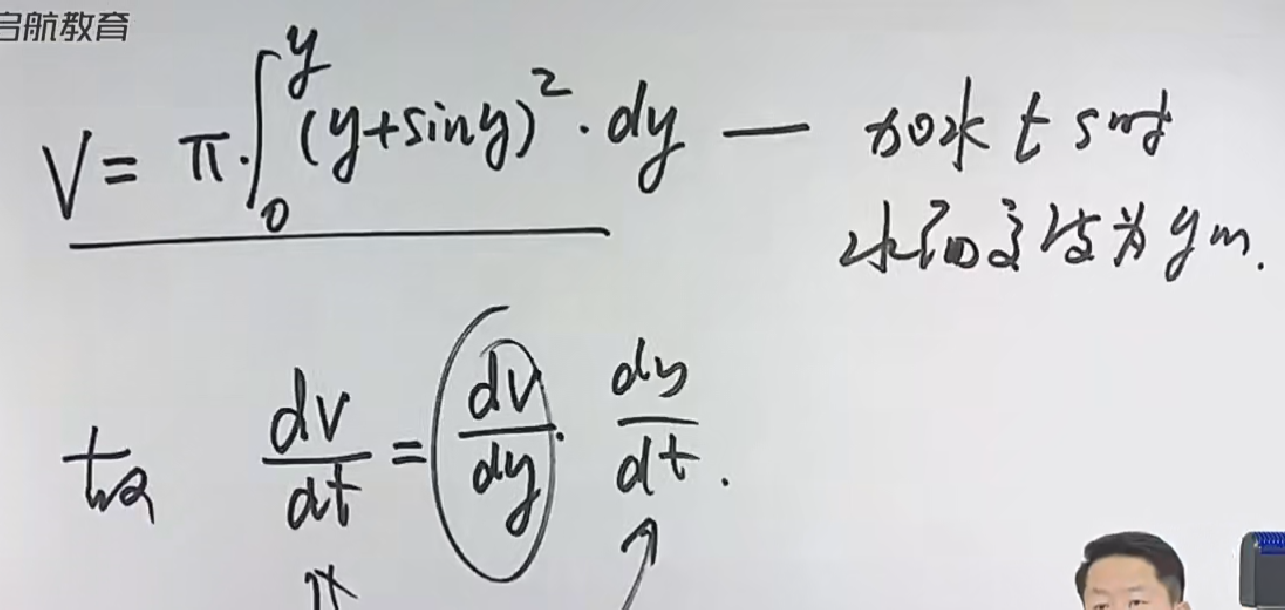 启航教育
V = π·∫₀ʸ (y+siny)²·dy — 加水 t s时
水面高度为 y m.
dv/dt = dv/dy · dy/dt.